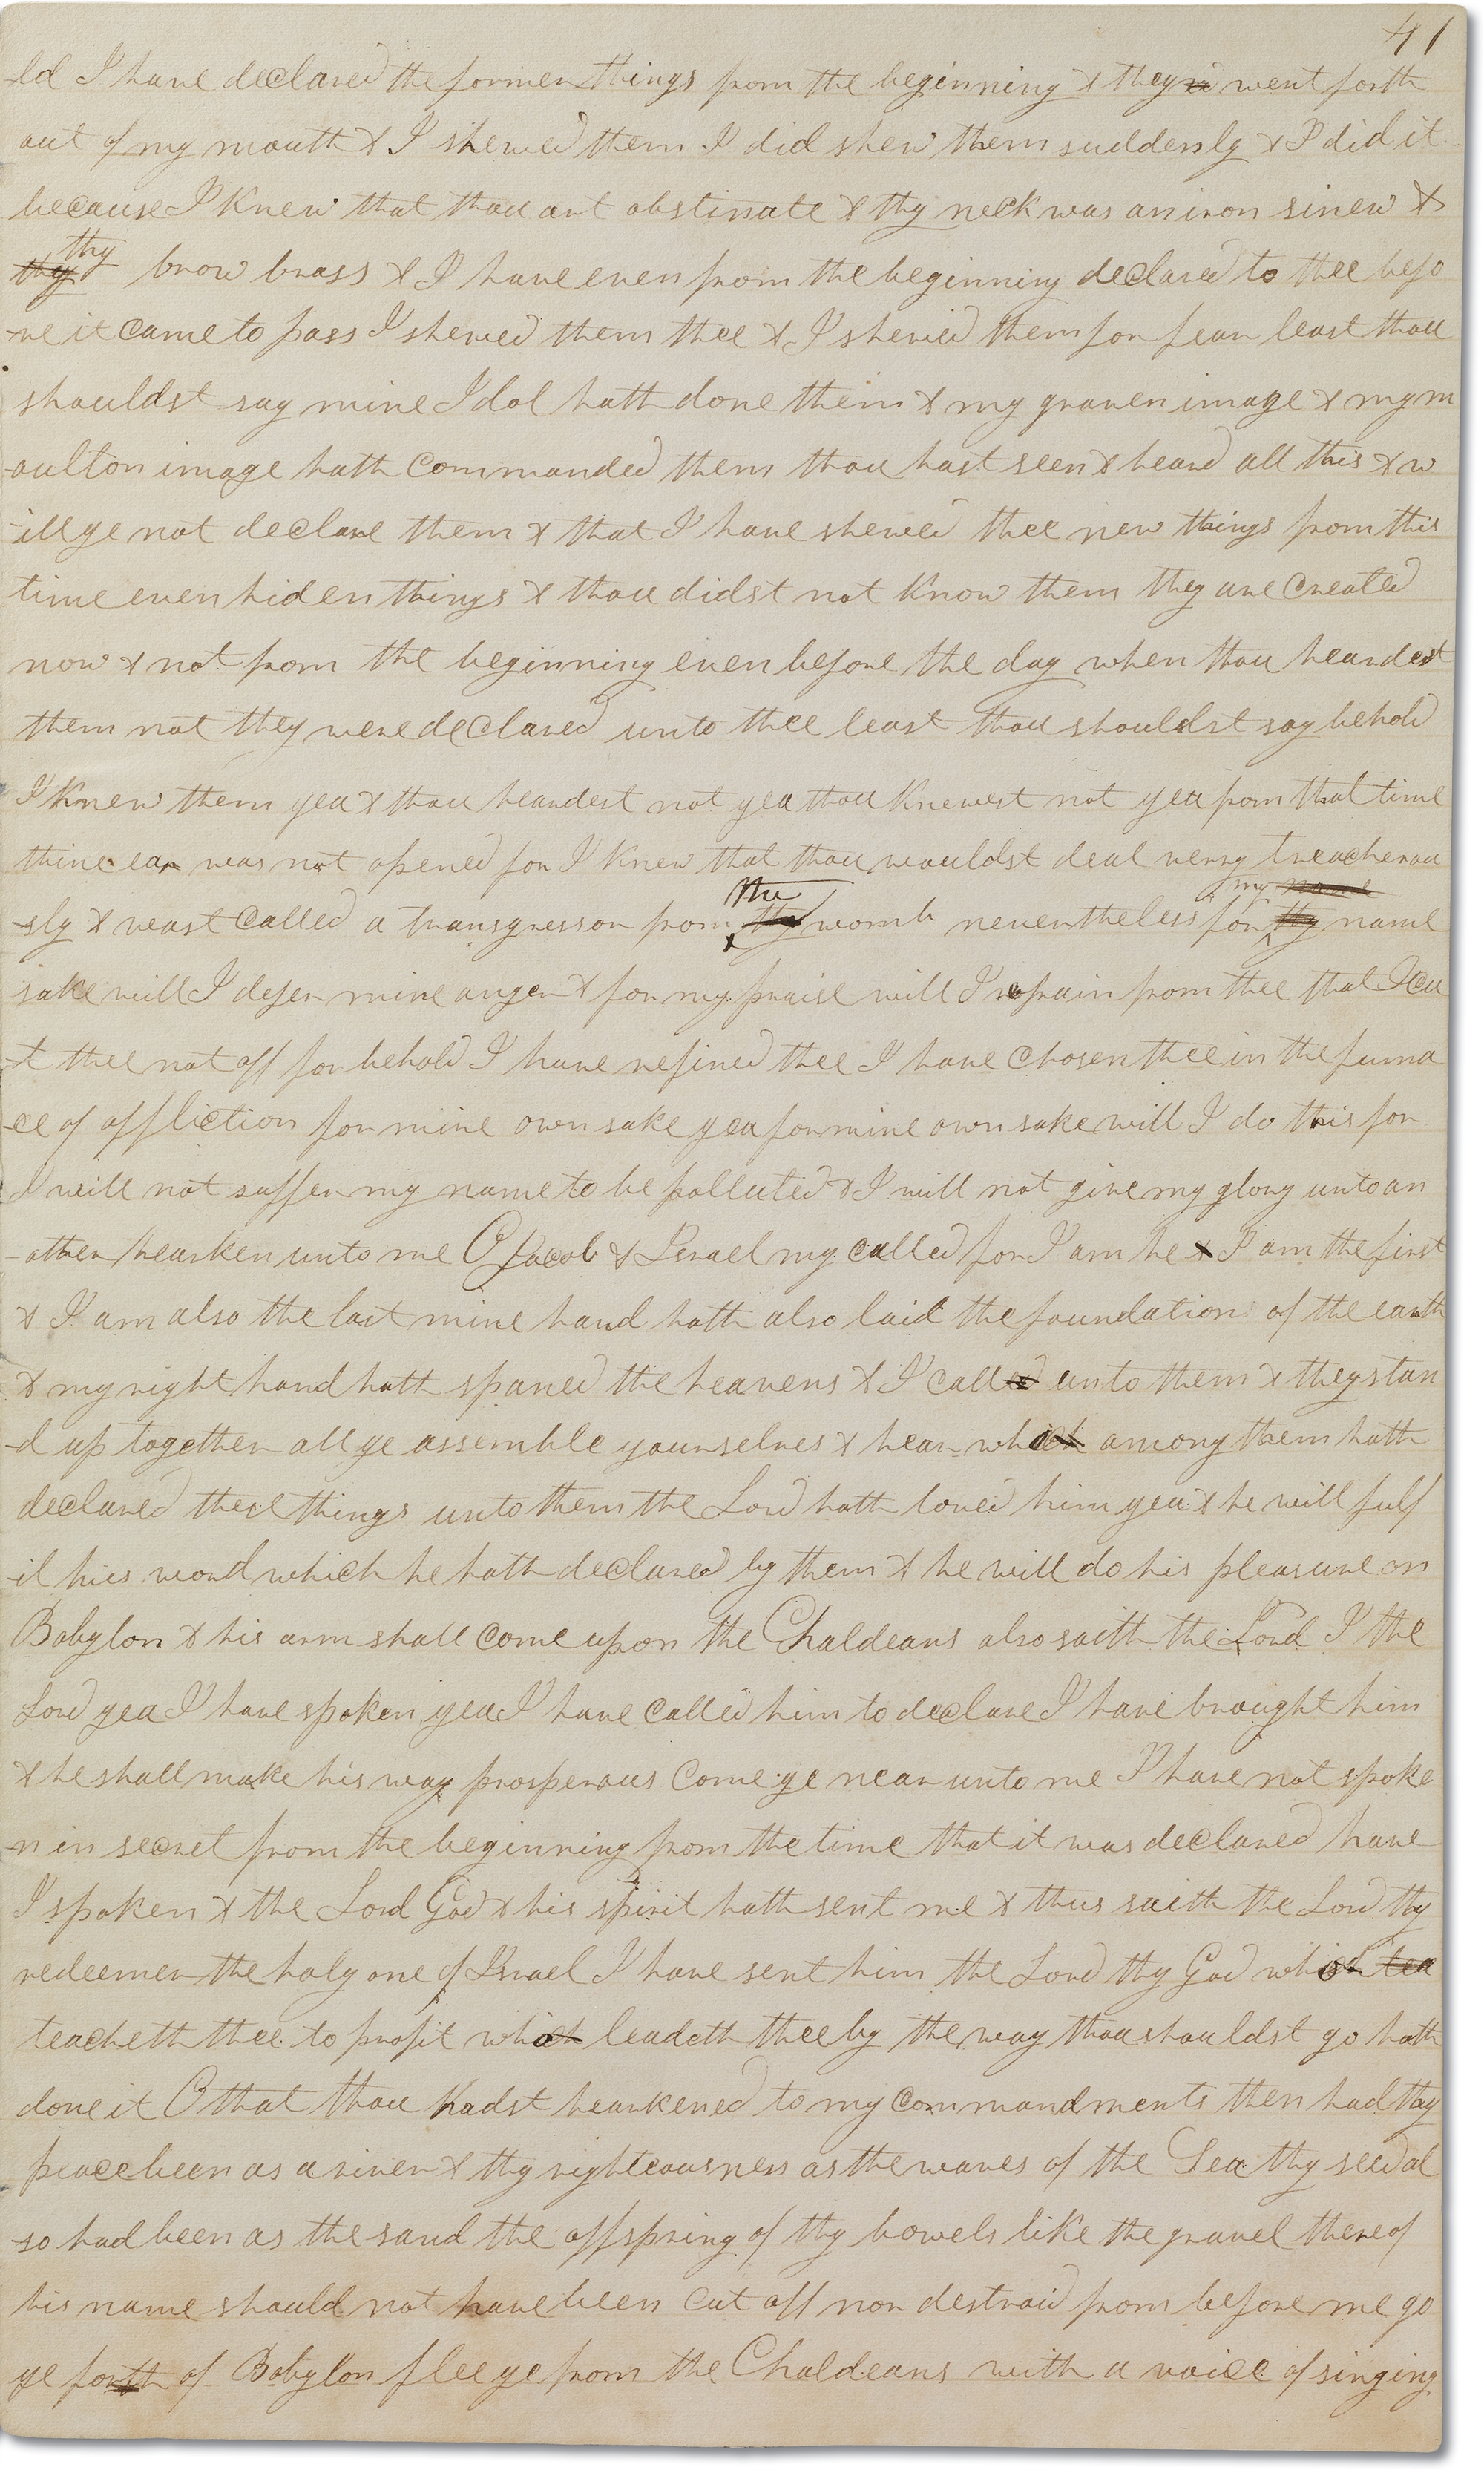 41
-ld I have declared the former things from the beginning & they went forth
out of my mouth & I shewed them I did shew them suddenly & I did it
because I knew that thou art obstinate & thy neck was an iron sinew &
thy thy brow brass & I have even from the beginning declared to thee befo
-re it came to pass I shewed them thee & I shewed them for fear least thou
shouldst say mine Idol hath done them & my graven image & my m
-oulton image hath commanded them thou hast seen & heard all this & w
-ill ye not declare them & that I have shewed thee new things from this
time even hiden things & thou didst not know them they are created
now & not from the beginning even before the day when thou heardest
them not they were declared unto thee least thou shouldst say behold
I knew them yea & thou heardest not yea thou knewest not yea from that time
thine ear was not opened for I knew that thou wouldst deal very treacherou
-sly & wast called a transgressor from thy the womb nevertheless for thy my name name
sake will I defer mine anger & for my praise will I refrain from thee that I cu
-t thee not off for behold I have refined thee I have chosen thee in the furna
-ce of affliction for mine own sake yea for mine own sake will I do this for
I will not suffer my name to be polluted & I will not give my glory unto an
-other hearken unto me O Jacob & Israel my called for I am he & I am the first
& I am also the last mine hand hath also laid the foundation of the earth
& my right hand hath spaned the heavens & I called unto them & they stan
-d up together all ye assemble yourselves & hear which among them hath
declared these things unto them the Lord hath loved him yea & he will fulf
-il his word which he hath declared by them & he will do his pleasure on
Babylon & his arm shall come upon the Chaldeans also saith the Lord I the
Lord yea I have spoken yea I have called him to declare I have brought him
& he shall make his way prosperous come ye near unto me I have not spoke
-n in secret from the beginning from the time that it was declared have
I spoken & the Lord God & his spirit hath sent me & thus saith the Lord thy
redeemer the holy one of Israel I have sent him the Lord thy God which tea
teacheth thee to profit which leadeth thee by the way thou shouldst go hath
done it O that thou hadst hearkened to my commandments then had thy
peace been as a river & thy righteousness as the waves of the Sea thy seed al
-so had been as the sand the offspring of thy bowels like the gravel thereof
his name should not have been cut off nor destroid from before me go
ye forth of Babylon flee ye from the Chaldeans with a voice of singing